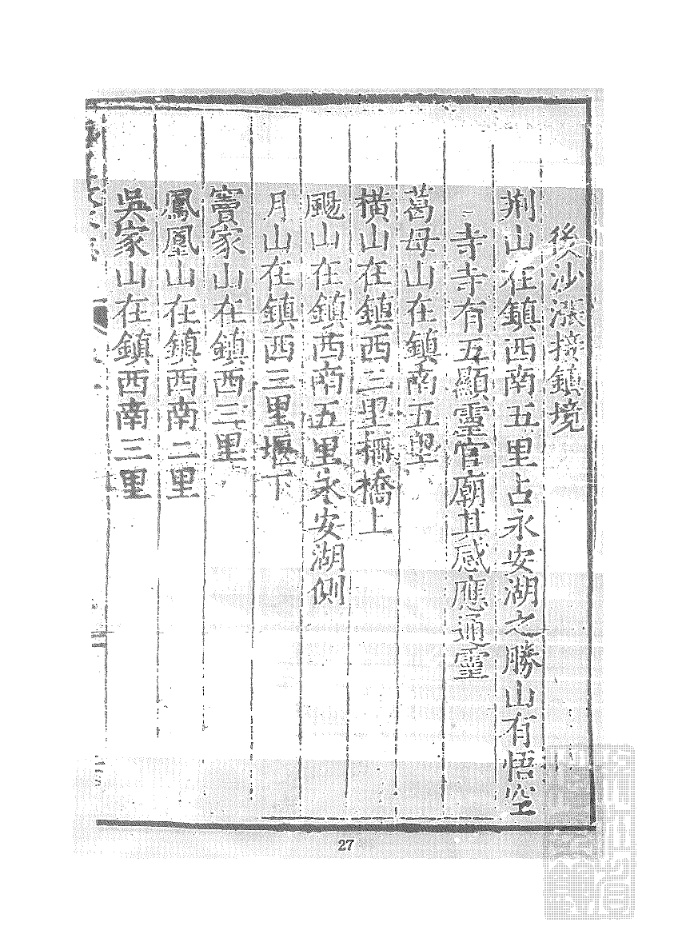 後沙漲接鎮境
荆山在鎮西南五里占永安湖之勝山有悟空
寺寺有五顯靈官廟其感應通靈
葛母山在鎮南五里
横山在鎮西三里橋上
颺山在鎮西南五里永安湖側
月山在鎮西三里堰下
竇家山在鎮西三里
鳳凰山在鎮西南二里
吳家山在鎮西南三里
27